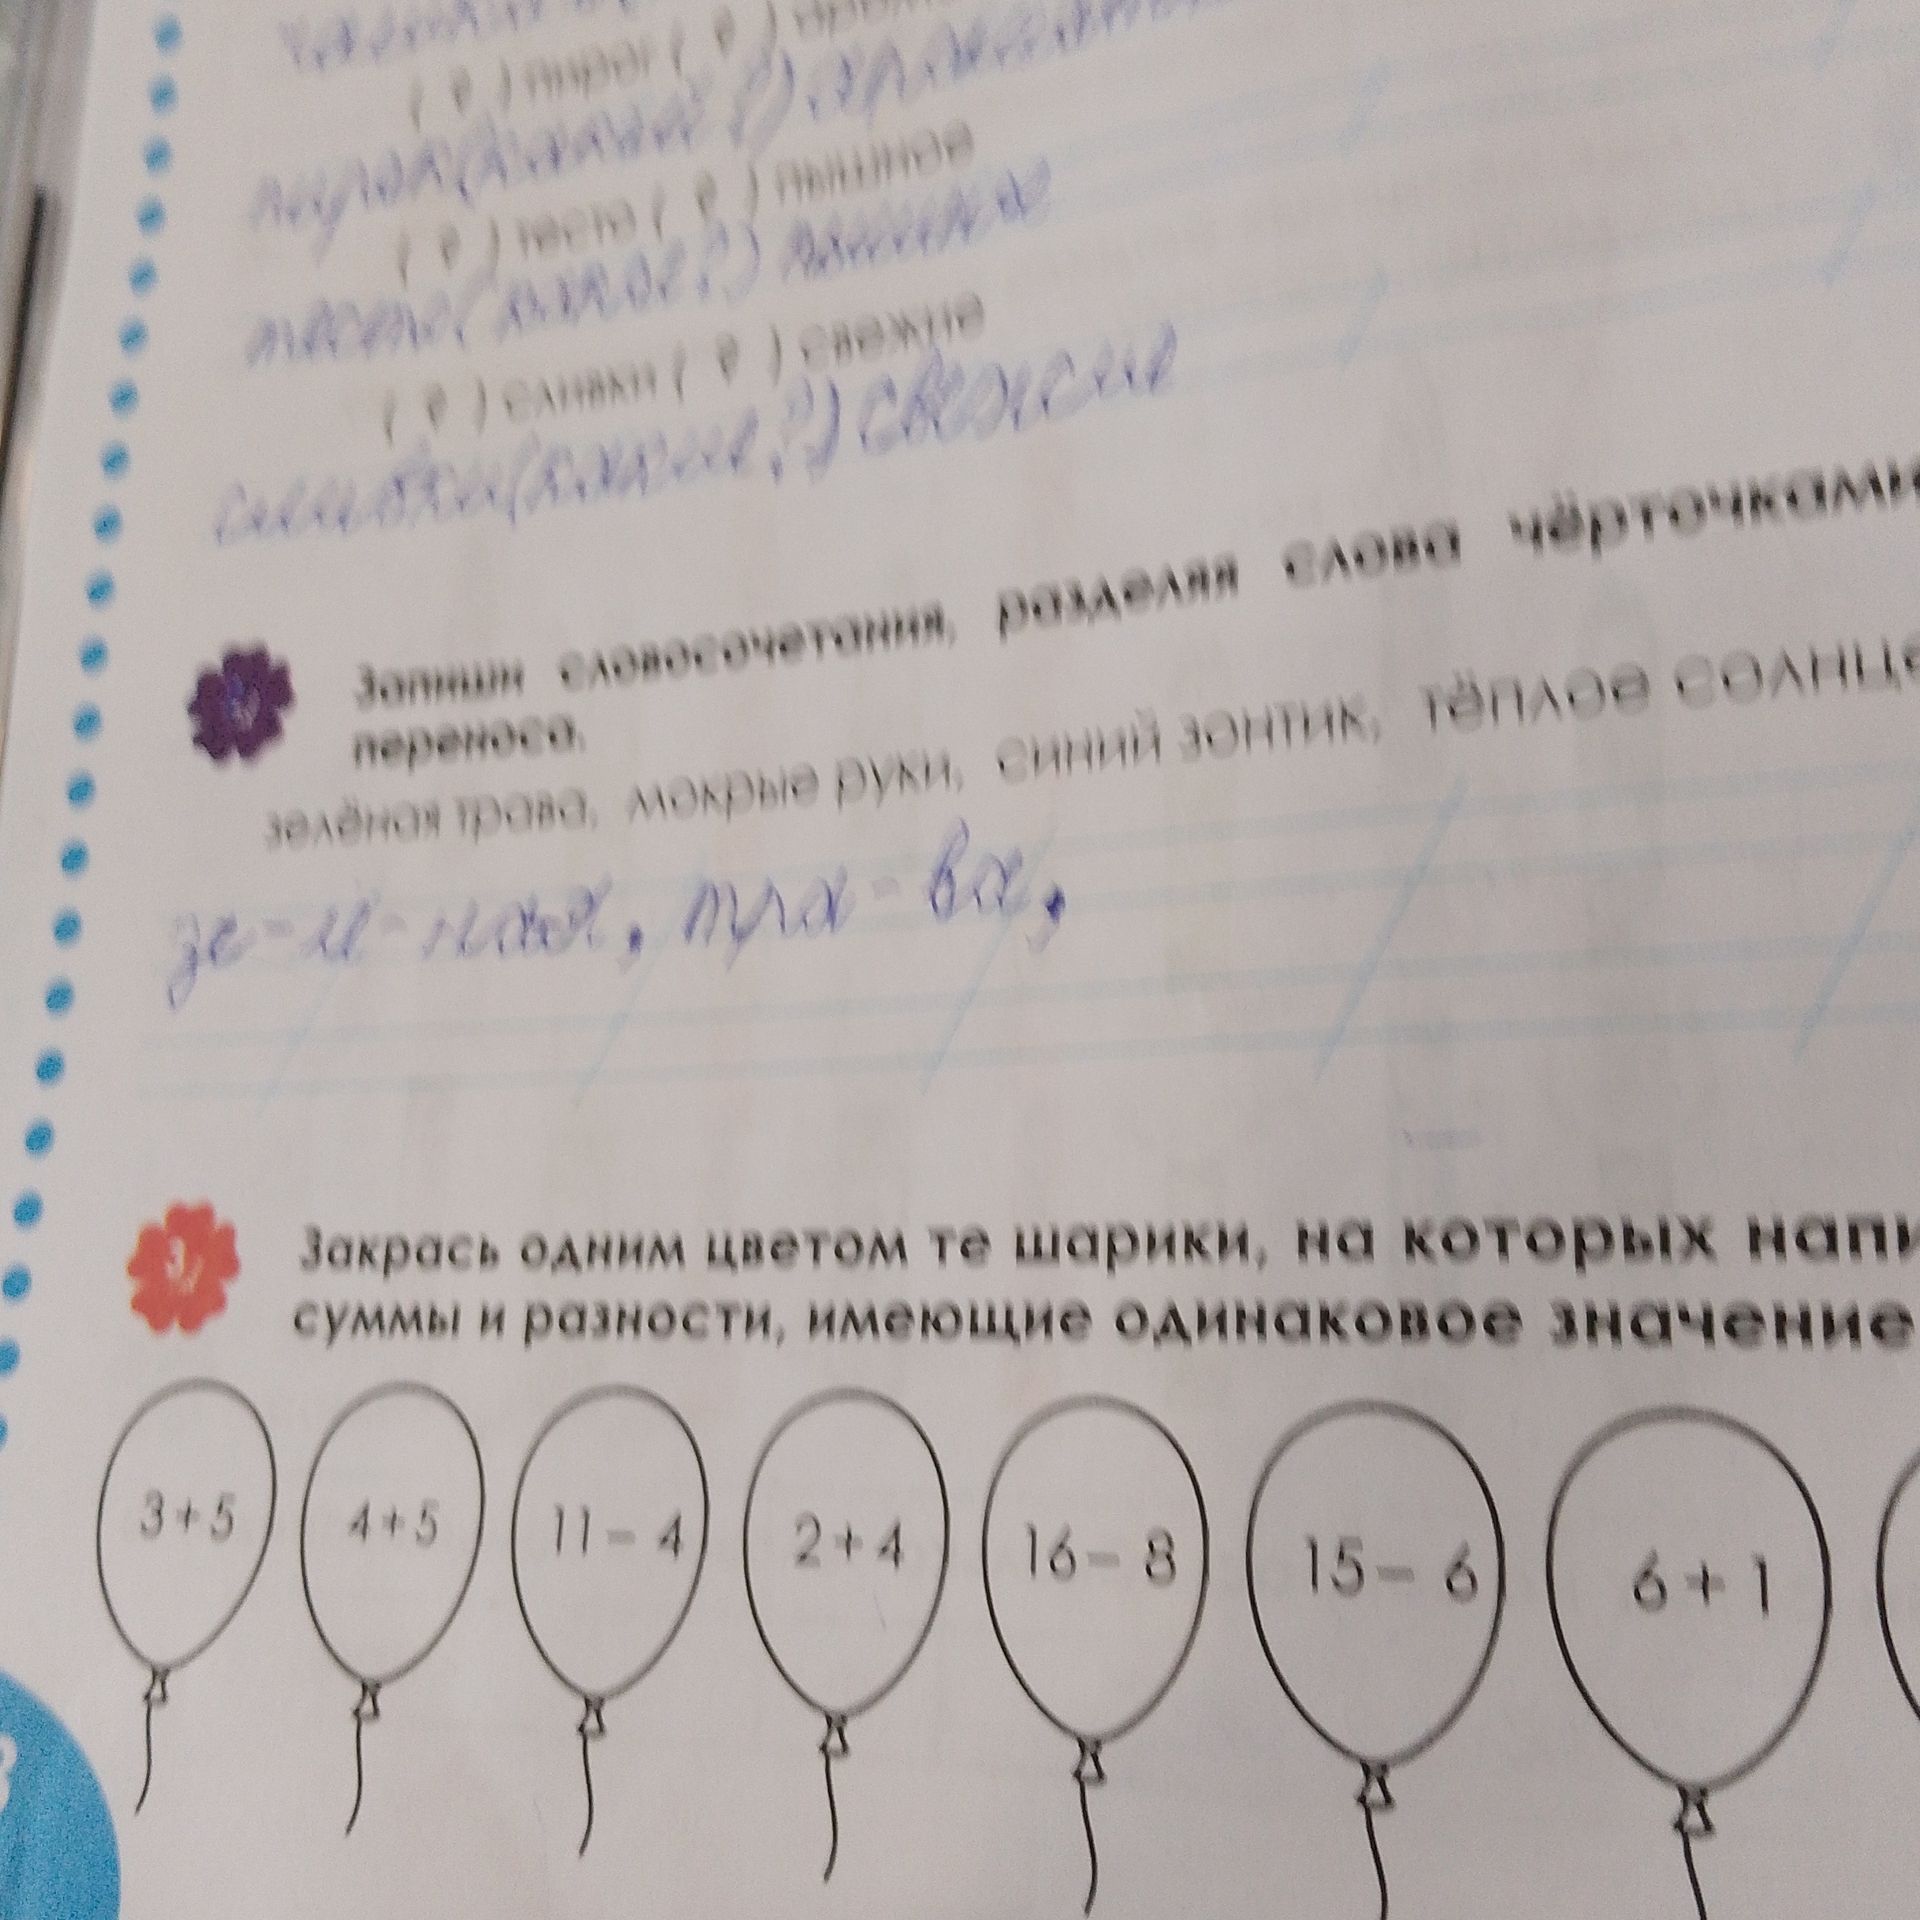 ( ? ) пирог ( ? )
( ? ) тесто ( ? ) пышное
тесто (какое?) пышное
( ? ) сливки ( ? ) свежие
сливки (какие?) свежие
Запиши словосочетания, разделяя слова чёрточками
переноса.
зелёная трава, мокрые руки, синий зонтик, тёплое солнце
зе - - ная, тра - ва,
3
Закрась одним цветом те шарики, на которых напи
суммы и разности, имеющие одинаковое значение
3 + 5 4 + 5 11 – 4 2 + 4 16 – 8 15 – 6 6 + 1